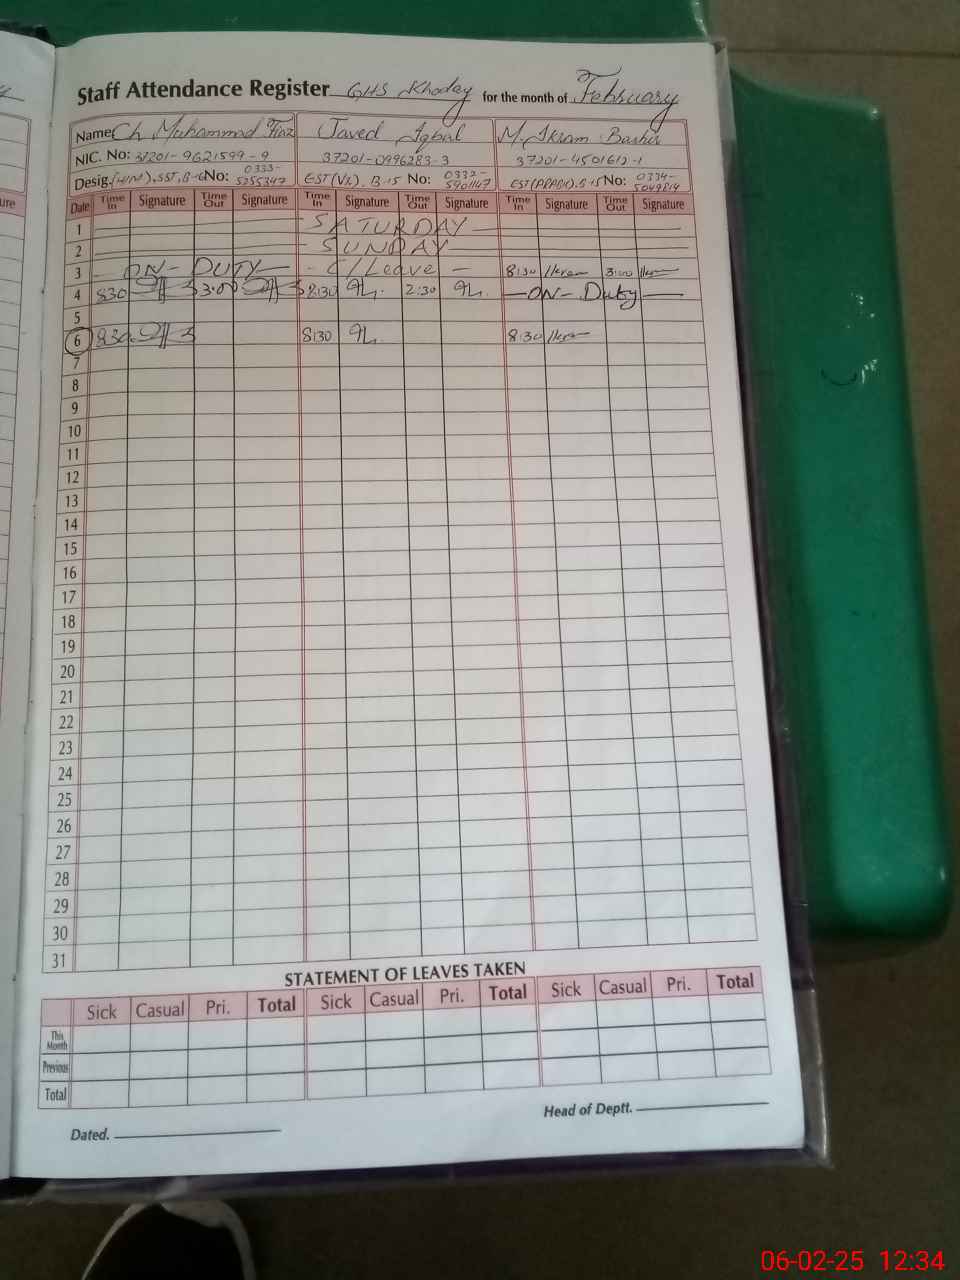 Staff Attendance Register GHS Khoday for the month of February
Name Ch Muhammad Fiaz Javed Iqbal M. Ikram Bashir
NIC. No: 37201-9621599-9 37201-0996283-3 37201-4501612-1
Desig. (H/M), SST, B-16 No: 0333-5255347 EST(V.), B-15 No: 0332-5901147 EST(ARABIC), B-15 No: 0334-5049814
Date Time In Signature Time Out Signature Time In Signature Time Out Signature Time In Signature Time Out Signature
1 SATURDAY
2 SUNDAY
3 ON-DUTY C/Leave 8:30 3:00
4 8:30 3:00 8:30 2:30 ON-Duty
5
6 8:30 8:30 8:30
7
8
9
10
11
12
13
14
15
16
17
18
19
20
21
22
23
24
25
26
27
28
29
30
31
STATEMENT OF LEAVES TAKEN
Sick Casual Pri. Total Sick Casual Pri. Total Sick Casual Pri. Total
This Month
Previous
Total
Dated. Head of Deptt.
06-02-25 12:34